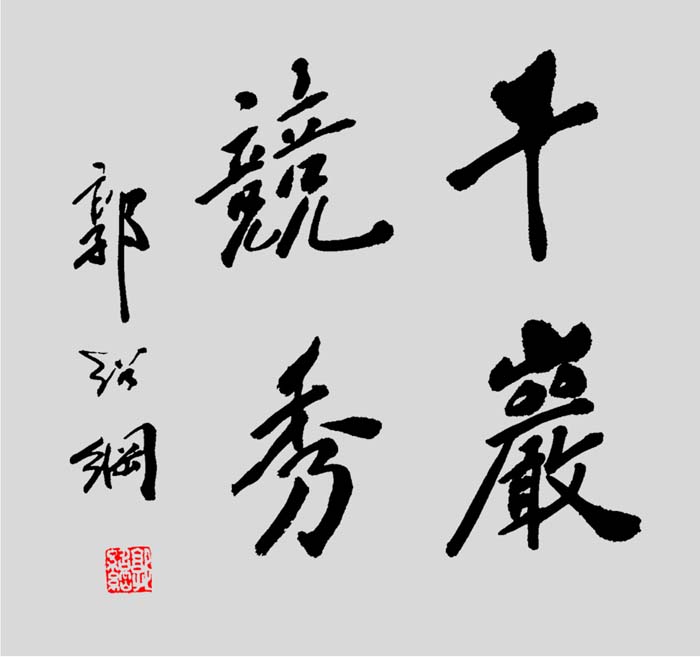 千巖
競秀
郭紹綱